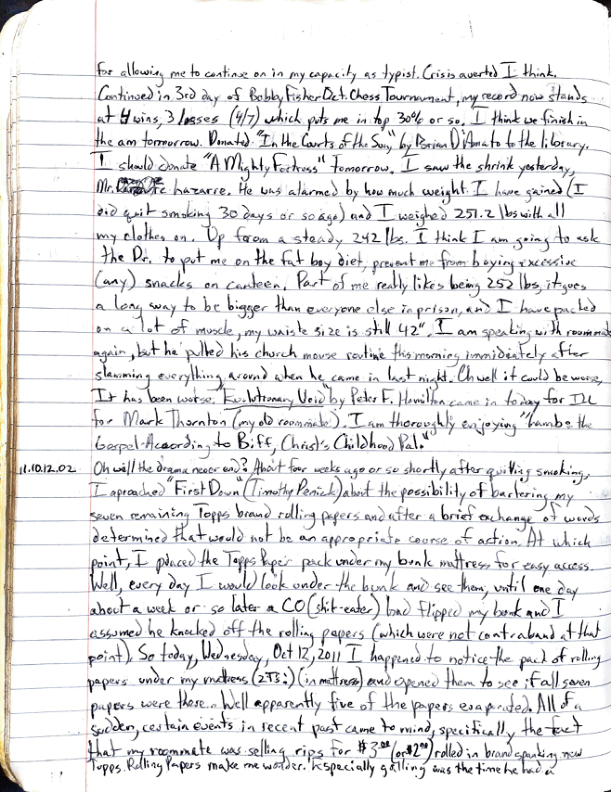 for allowing me to continue on in my capacity as typist. Crisis averted I think.
Continued in 3rd day of Bobby Fisher Oct. Chess Tournament, my record now stands
at 4 wins, 3 losses (4/7) which puts me in top 30% or so. I think we finish in
the am tomorrow. Donated "In the Courts of the Sun" by Brian D'Amato to the library.
I should donate "A Mighty Fortress" tomorrow. I saw the shrink yesterday,
Mr. hazarre. He was alarmed by how much weight I have gained (I
did quit smoking 30 days or so ago) and I weighed 251.2 lbs with all
my clothes on. Up from a steady 242 lbs. I think I am going to ask
the Dr. to put me on the fat boy diet, prevent me from buying excessive
(any) snacks on canteen. Part of me really likes being 252 lbs, it goes
a long way to be bigger than everyone else in prison, and I have packed
on a lot of muscle, my waiste size is still 42". I am speaking with roommate
again, but he pulled his church mouse routine this morning immidiately after
slamming everything around when he came in last night. Oh well it could be worse,
It has been worse. "Evolutionary Void" by Peter F. Hamilton came in today for ILL
for Mark Thornton (my old roommate). I am thoroughly enjoying "Lamb: the
Gospel According to Biff, Christ's Childhood Pal."
11.10.12.02 Oh will the drama never end? About four weeks ago or so shortly after quitting smoking,
I aproached "First Down" (Timothy Penick) about the possibility of bartering my
seven remaining Topps brand rolling papers and after a brief exchange of words
determined that would not be an appropriate course of action. At which
point, I placed the Topps Paper pack under my bunk mattress for easy access.
Well, every day I would look under the bunk and see them, until one day
about a week or so later a CO (shit-eater) had flipped my bunk and I
assumed he knocked off the rolling papers (which were not contraband at that
point). So today, Wednesday, Oct 12, 2011 I happened to notice the pack of rolling
papers under my mattress (in mattress) and opened them to see if all seven
papers were there... Well apparently five of the papers evaporated. All of a
sudden, certain events in recent past came to mind, specifically the fact
that my roommate was selling rips for $3.00 (or $2.00) rolled in brand spanking new
Topps. Rolling Papers make me wonder. Especially galling was the time he had a